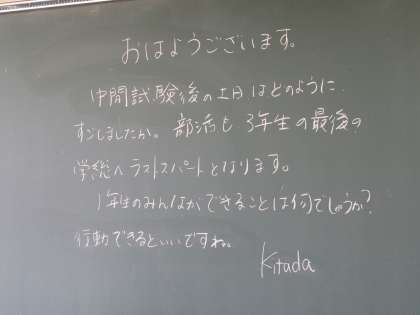 おはようございます。
中間試験後の土日はどのように
すごしましたか。部活も3年生の最後の
学総へラストスパートとなります。
1年生のみんなができることは何でしょうか?
行動できるといいですね。
Kitada